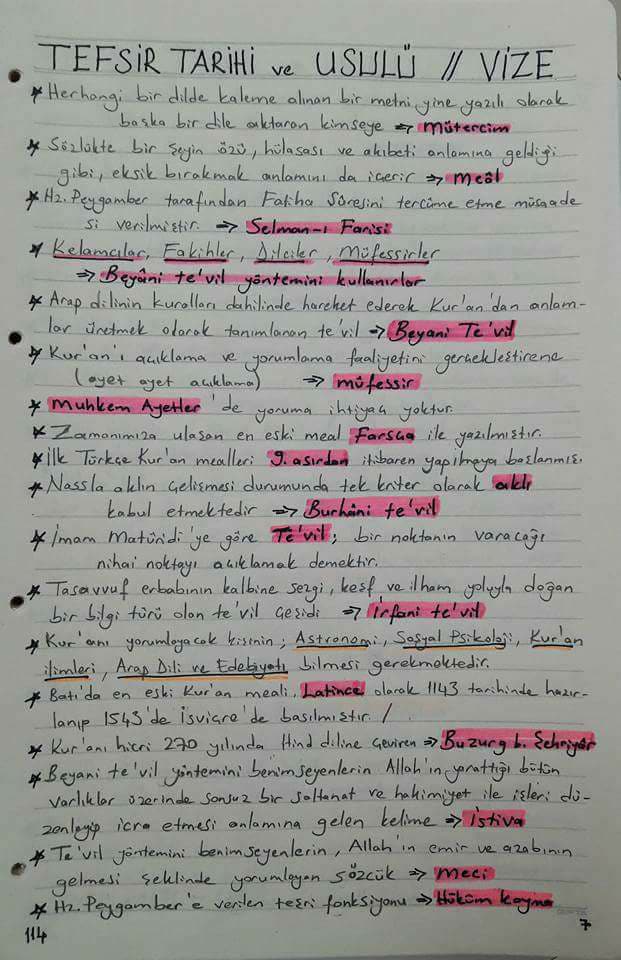 TEFSİR TARİHİ ve USULÜ // VİZE
* Herhangi bir dilde kaleme alınan bir metni, yine yazılı olarak
başka bir dile aktaran kimseye => mütercim
* Sözlükte bir şeyin özü, hülasası ve akıbeti anlamına geldiği
gibi, eksik bırakmak anlamını da içerir => meâl
* Hz. Peygamber tarafından Fatiha Sûresini tercüme etme müsaade
si verilmiştir. => Selman-ı Farisi
* Kelamcılar, Fakihler, Dilciler, Müfessirler
=> Beyâni te'vil yöntemini kullanırlar
* Arap dilinin kuralları dahilinde hareket ederek Kur'an'dan anlam-
lar üretmek olarak tanımlanan te'vil => Beyani Te'vil
* Kur'an'ı açıklama ve yorumlama faaliyetini gerçekleştirene
(ayet ayet açıklama) => müfessir
* Muhkem Ayetler'de yoruma ihtiyaç yoktur.
* Zamanımıza ulaşan en eski meal Farsça ile yazılmıştır.
* İlk Türkçe Kur'an mealleri 9. asırdan itibaren yapılmaya başlanmış.
* Nassla aklın çelişmesi durumunda tek kriter olarak aklı
kabul etmektedir => Burhâni te'vil
* İmam Matüridi'ye göre Te'vil; bir noktanın varacağı
nihai noktayı açıklamak demektir.
* Tasavvuf erbabının kalbine sezgi, keşf ve ilham yoluyla doğan
bir bilgi türü olan te'vil çeşidi => İrfani te'vil
* Kur'anı yorumlayacak kişinin; Astronomi, Sosyal Psikoloji, Kur'an
ilimleri, Arap Dili ve Edebiyatı bilmesi gerekmektedir.
* Batı'da en eski Kur'an meali, Latince olarak 1143 tarihinde hazır-
lanıp 1543'de İsviçre'de basılmıştır. /
* Kur'anı hicri 270 yılında Hind diline çeviren => Buzurg b. Şehriyâr
* Beyani te'vil yöntemini benimseyenlerin Allah'ın yarattığı bütün
varlıklar üzerinde sonsuz bir saltanat ve hakimiyet ile işleri dü-
zenleyip icra etmesi anlamına gelen kelime => İstiva
* Te'vil yöntemini benimseyenlerin, Allah'ın emir ve azabının
gelmesi şeklinde yorumlayan sözcük => Meci
* Hz. Peygamber'e verilen teşri fonksiyonu => Hüküm koyma
114
7